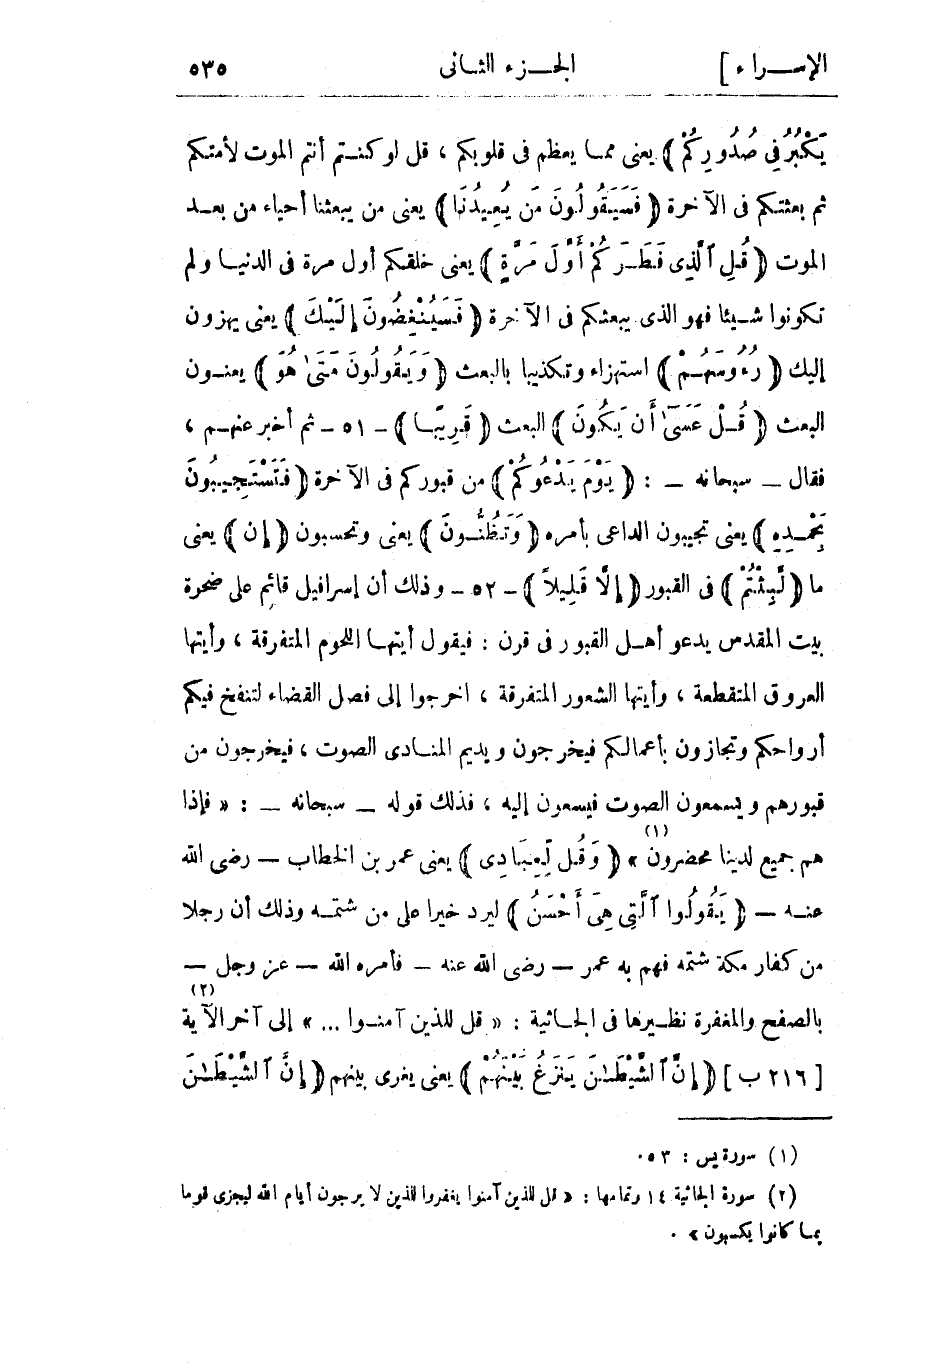 الإســراء ] الجــزء الثــانى ٥٣٥
يَكْبُرُ فِي صُدُورِكُمْ ) يعنى ممــا يعظم فى قلوبكم ، قل لو كنــتم أنتم الموت لأمتــكم
ثم بعثتــكم فى الآخرة ( فَسَيَقُولُونَ مَن يُعِيدُنَا ) يعنى من يبعثنا أحياء من بعــد
الموت ( قُلِ ٱلَّذِى فَطَرَكُمْ أَوَّلَ مَرَّةٍ ) يعنى خلقــكم أول مرة فى الدنيــا ولم
تكونوا شــيئا فهو الذى يبعثكم فى الآخرة ( فَسَيُنْغِضُونَ إِلَيْكَ ) يعنى يهزون
إليك ( رُءُوسَهُــمْ ) استهزاء وتــكذيبا بالبعث ( وَيَقُولُونَ مَتَىٰ هُوَ ) يعنــون
البعث ( قُــلْ عَسَىٰٓ أَن يَكُونَ ) البعث ( قَرِيبًــا ) ــ ٥١ ــ ثم أخبر عنهــم ،
فقال ــ سبحانه ــ : ( يَوْمَ يَدْعُوكُمْ ) من قبوركم فى الآخرة ( فَتَسْتَجِيبُونَ
بِحَمْــدِهِ ) يعنى تجيبون الداعى بأمره ( وَتَظُنُّــونَ ) يعنى وتحسبون ( إِن ) يعنى
ما ( لَّبِثْتُمْ ) فى القبور ( إِلَّا قَلِيلاً ) ــ ٥٢ ــ وذلك أن إسرافيل قائم على صخرة
بيت المقدس يدعو أهــل القبور فى قرن : فيقول أيتهــا اللحوم المتفرقة ، وأيتها
العروق المتقطعة ، وأيتها الشعور المتفرقة ، اخرجوا إلى فصل القضاء لتنفخ فيكم
أرواحكم وتجازون بأعمالــكم فيخرجون ويديم المنــادى الصوت ، فيخرجون من
قبورهم ويسمعون الصوت فيسعون إليه ، فذلك قوله ــ سبحانه ــ : « فإذا
هم جميع لدينا محضرون » (١) ( وَقُل لِّعِبَادِى ) يعنى عمر بن الخطاب ــ رضى الله
عنــه ــ ( يَقُولُوا ٱلَّتِى هِىَ أَحْسَنُ ) ليرد خيرا على من شتمــه وذلك أن رجلا
من كفار مكة شتمه فهم به عمر ــ رضى الله عنه ــ فأمره الله ــ عز وجل ــ
بالصفح والمغفرة نظــيرها فى الجــاثية : « قل للذين آمنــوا ... » إلى آخر الآية (٢)
[ ٢١٦ ب ] ( إِنَّ ٱلشَّيْطَــٰنَ يَنزَغُ بَيْنَهُمْ ) يعنى يغرى بينهم ( إِنَّ ٱلشَّيْطَــٰنَ
(١) سورة يس : ٥٣ .
(٢) سورة الجاثية ١٤ وتمامها : « قل للذين آمنوا يغفروا للذين لا يرجون أيام الله ليجزى قوما
بمــا كانوا يكسبون » .